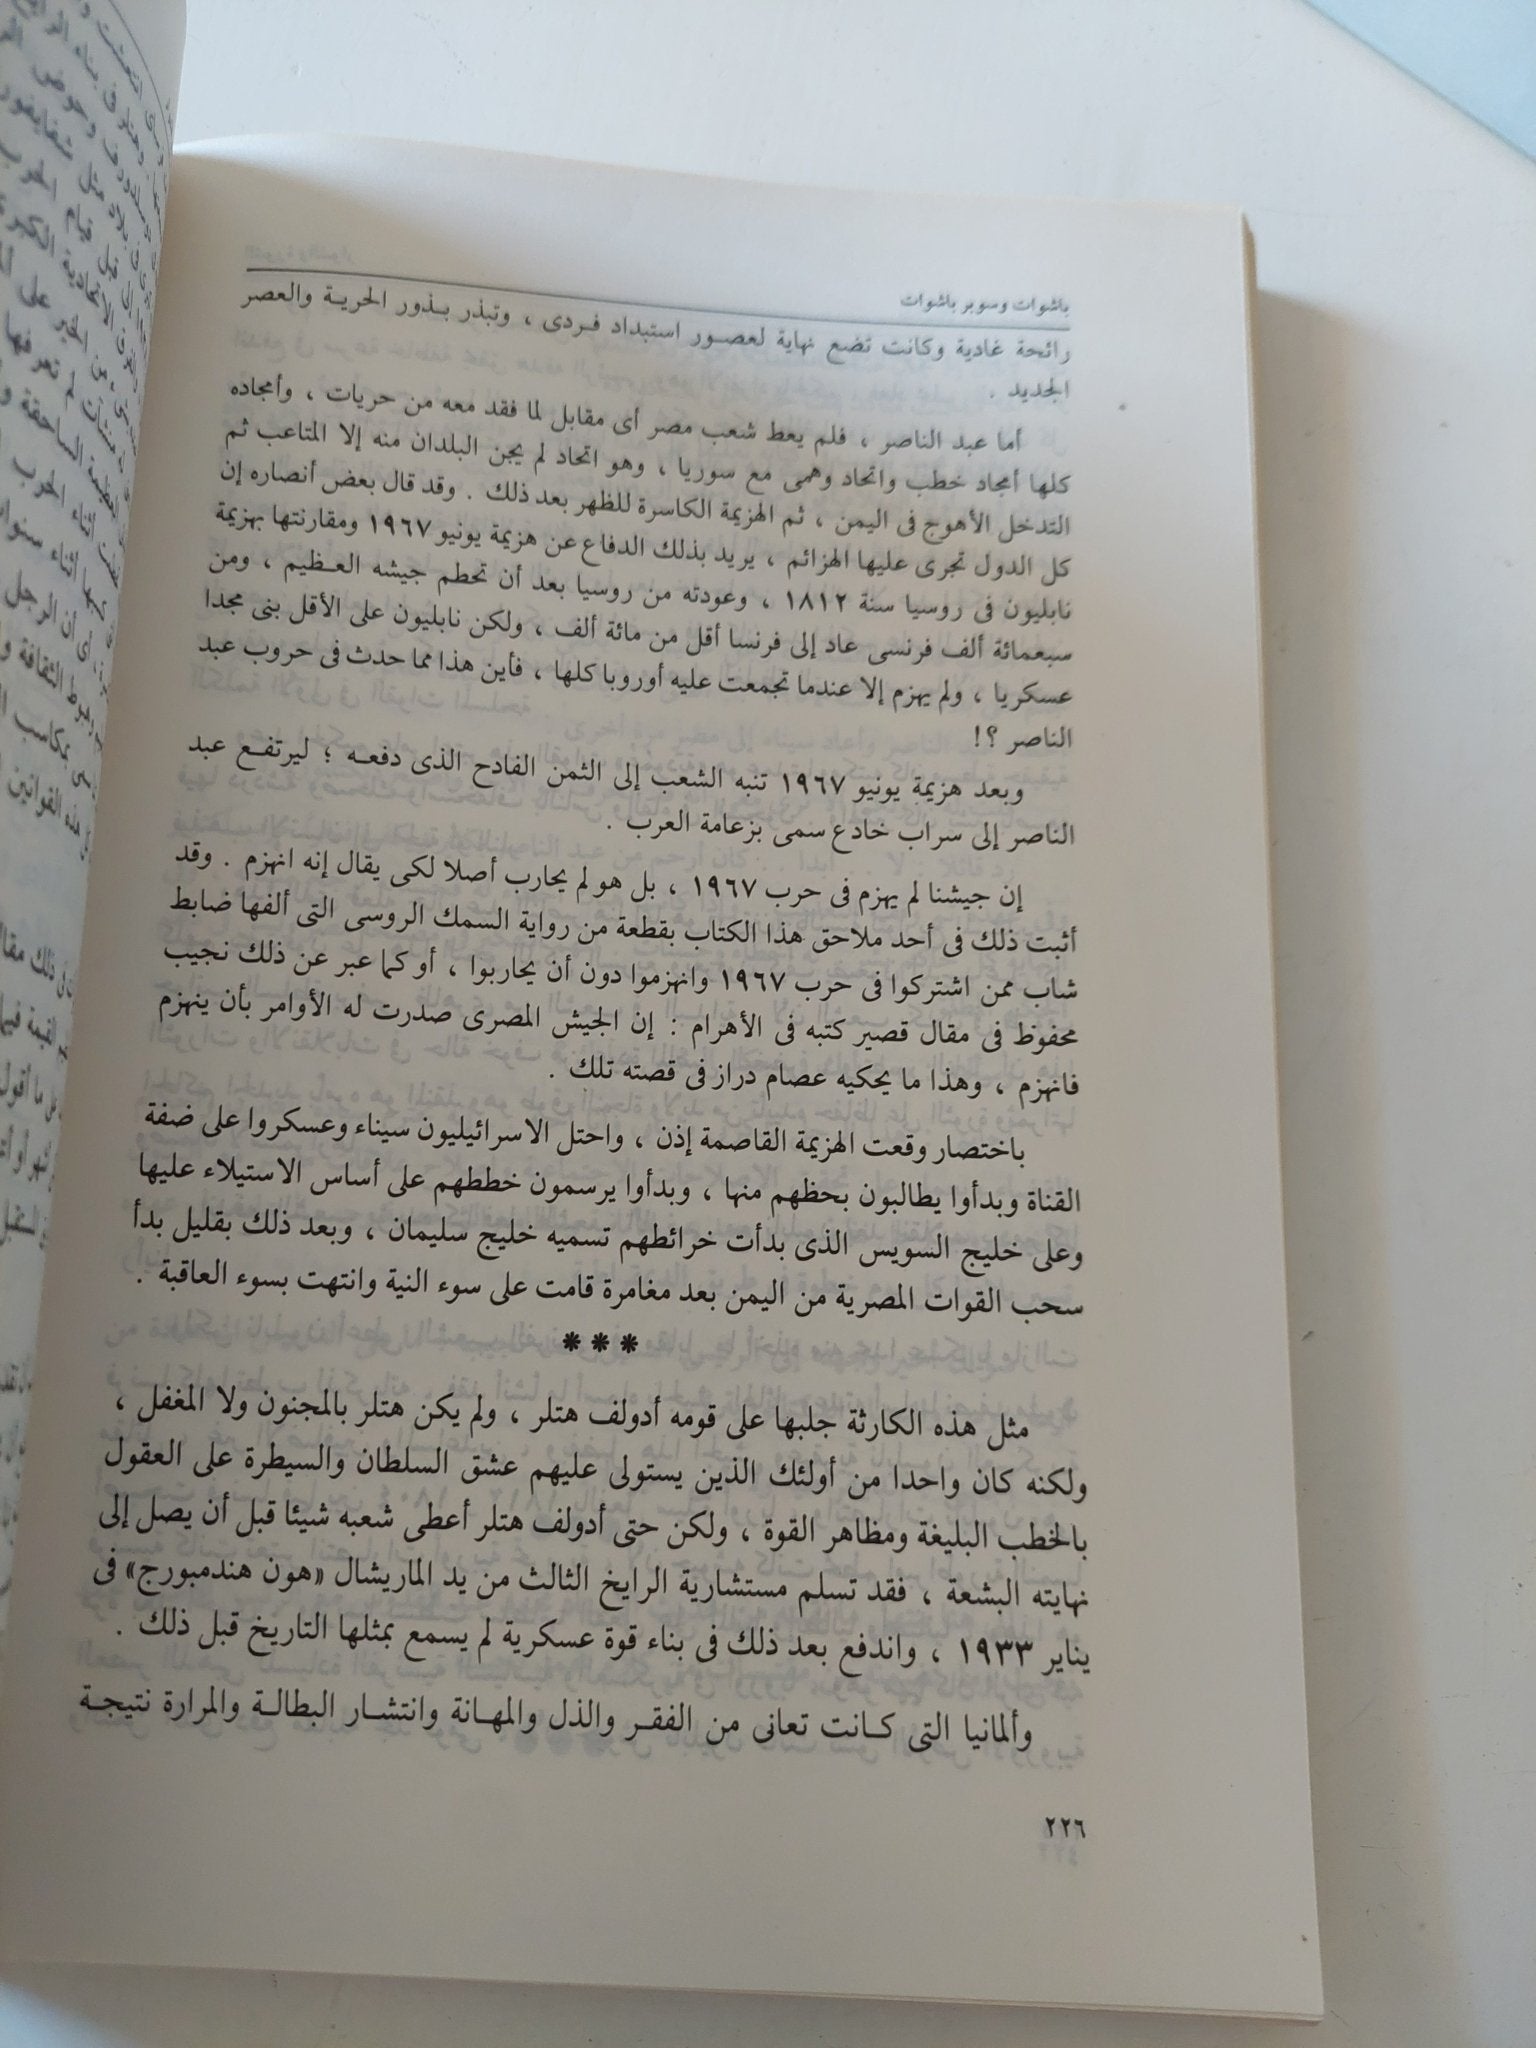 باشوات وسوبر باشوات
رائحة غادية وكانت تضع نهاية لعصـور استبداد فـردى ، وتبذر بـذور الحريـة والعصر
الجديد .
أما عبد الناصر ، فلم يعط شعب مصر أى مقابل لما فقد معه من حريات ، وأمجاده
كلها أمجاد خطب واتحاد وهمى مع سوريا ، وهو اتحاد لم يجن البلدان منه إلا المتاعب ثم
التدخل الأهوج فى اليمن ، ثم الهزيمة الكاسرة للظهر بعد ذلك . وقد قال بعض أنصاره إن
كل الدول تجرى عليها الهزائم ، يريد بذلك الدفاع عن هزيمة يونيو ١٩٦٧ ومقارنتها بهزيمة
نابليون فى روسيا سنة ١٨١٢ ، وعودته من روسيا بعد أن تحطم جيشه العـظيم ، ومن
سبعمائة ألف فرنسى عاد إلى فرنسا أقل من مائة ألف ، ولكن نابليون على الأقل بنى مجدا
عسكريا ، ولم يهزم إلا عندما تجمعت عليه أوروبا كلها ، فأين هذا مما حدث فى حروب عبد
الناصر ؟!
وبعد هزيمة يونيو ١٩٦٧ تنبه الشعب إلى الثمن الفادح الذى دفعـه ؛ ليرتفـع عبد
الناصر إلى سراب خادع سمى بزعامة العرب .
إن جيشنا لم يهزم فى حرب ١٩٦٧ ، بل هو لم يحارب أصلا لكى يقال إنه انهزم . وقد
أثبت ذلك فى أحد ملاحق هذا الكتاب بقطعة من رواية السمك الروسى التى ألفها ضابط
شاب ممن اشتركوا فى حرب ١٩٦٧ وانهزموا دون أن يحاربوا ، أو كما عبر عن ذلك نجيب
محفوظ فى مقال قصير كتبه فى الأهرام : إن الجيش المصرى صدرت له الأوامر بأن ينهزم
فانهزم ، وهذا ما يحكيه عصام دراز فى قصته تلك .
باختصار وقعت الهزيمة القاصمة إذن ، واحتل الاسرائيليون سيناء وعسكروا على ضفة
القناة وبدأوا يطالبون بحظهم منها ، وبدأوا يرسمون خططهم على أساس الاستيلاء عليها
وعلى خليج السويس الذى بدأت خرائطهم تسميه خليج سليمان ، وبعد ذلك بقليل بدأ
سحب القوات المصرية من اليمن بعد مغامرة قامت على سوء النية وانتهت بسوء العاقبة .
* * *
مثل هذه الكارثة جلبها على قومه أدولف هتلر ، ولم يكن هتلر بالمجنون ولا المغفل ،
ولكنه كان واحدا من أولئك الذين يستولى عليهم عشق السلطان والسيطرة على العقول
بالخطب البليغة ومظاهر القوة ، ولكن حتى أدولف هتلر أعطى شعبه شيئا قبل أن يصل إلى
نهايته البشعة ، فقد تسلم مستشارية الرايخ الثالث من يد الماريشال «هون هندمبورج» فى
يناير ١٩٣٣ ، واندفع بعد ذلك فى بناء قوة عسكرية لم يسمع بمثلها التاريخ قبل ذلك .
وألمانيا التى كـانت تعانى من الفقـر والذل والمهـانة وانتشـار البطالـة والمرارة نتيجـة
٢٢٦